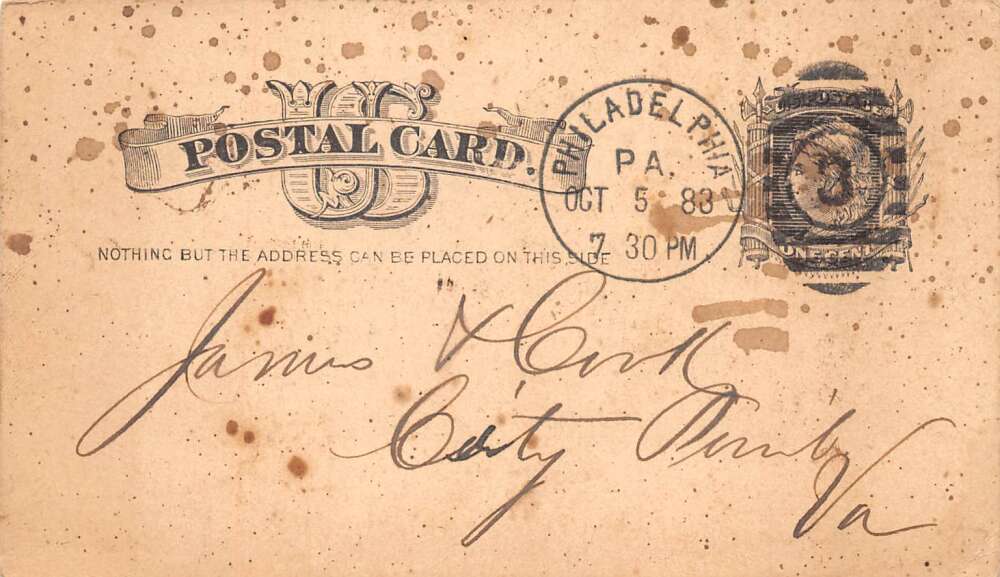 US
POSTAL CARD.
NOTHING BUT THE ADDRESS CAN BE PLACED ON THIS SIDE
PHILADELPHIA
PA.
OCT 5 83
7 30 PM
U.S. POSTAGE
3
ONE CENT
James & Cook
City Point
Va